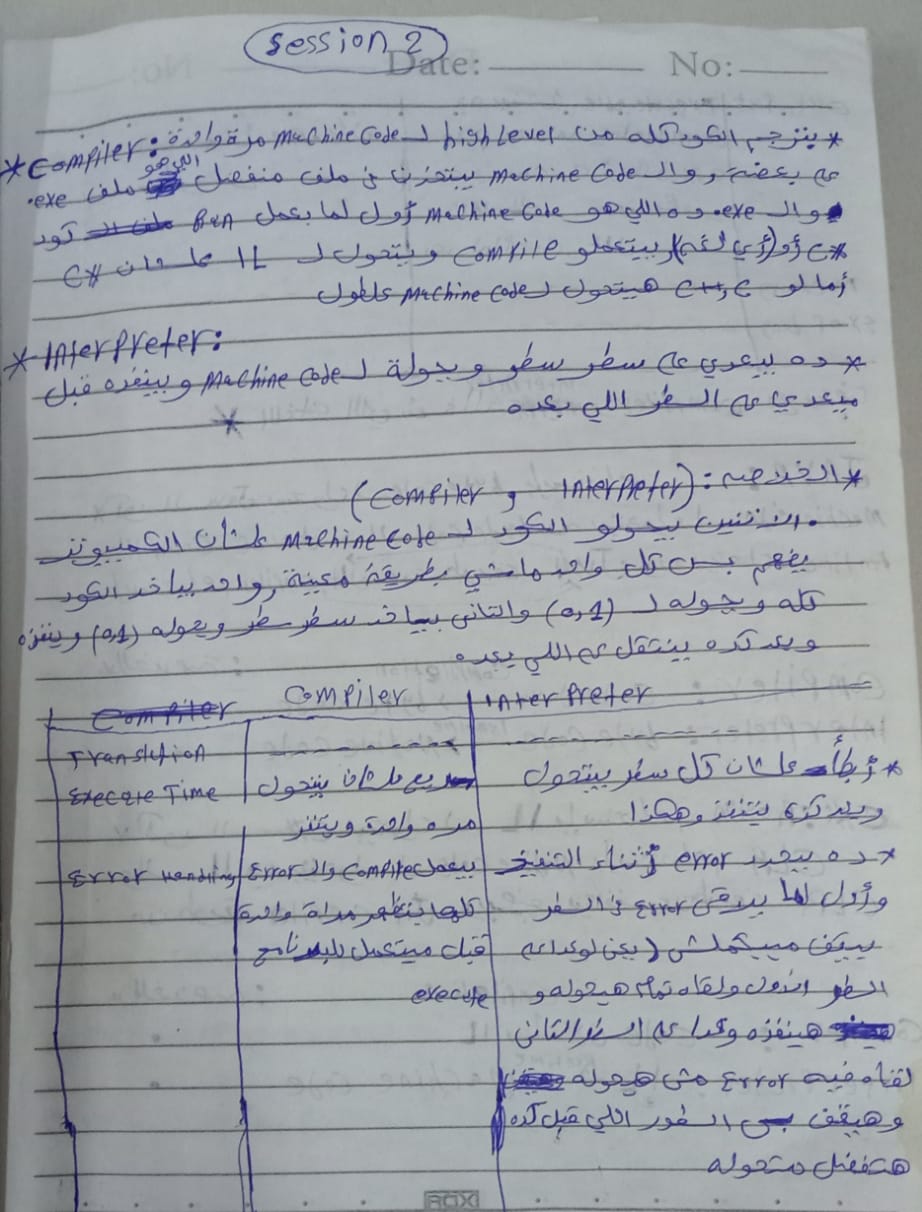 Session 2
Date: No:
* Compiler: * يترجم الكود كله من high level لـ Machine Code مرة واحدة
علي بعضه, والـ Machine Code بيتخزن في ملف منفصل اللي هو ملف .exe
والـ .exe ده اللي هو Machine Code أول لما بعمل Run كود
C# أو (أي لغه) بيتعملو Compile ويتحول لـ IL علشان C#
أما لو C++, C هيتحول لـ Machine Code علطول
* Interpreter:
* ده بيعدي علي سطر سطر ويحولة لـ Machine Code وبينفذه قبل
ميعدي علي السطر اللي بعده
*
* الخلاصه: (Compiler و Interpreter)
. الاتنين بيحولو الكود لـ Machine Code علشان الكمبيوتر
يفهم بس كل واحد ماشي بطريقة معينة, واحد بياخد الكود
كله ويحوله لـ (0,1) والتاني بياخد سطر سطر ويحوله (0,1) وينفذه
وبعد كده ينتقل علي اللي بعده
Compiler Interpreter
Translation
Execute Time سريع علشان بيتحول * أبطأ علشان كل سطر بيتحول
مره واحدة ويتنفذ وبعد كده يتنفذ وهكذا
Error Handling بيعمل Compile والـ Error * ده بيحدد error أثناء التنفيذ
كلها بتظهر مراة واحدة وأول لما يلاقي error في السطر
قبل ميتعمل للبرنامج بيقف مبيكملش (يعني لو عدا علي
execute السطر الأول ولقاه تمام هيحوله و
هينفذه وعدا علي السطر التاني
لقاه فيه error مش هيحوله
وهيقف بس السطور اللي قبل كده
هتفضل متحوله
ROX